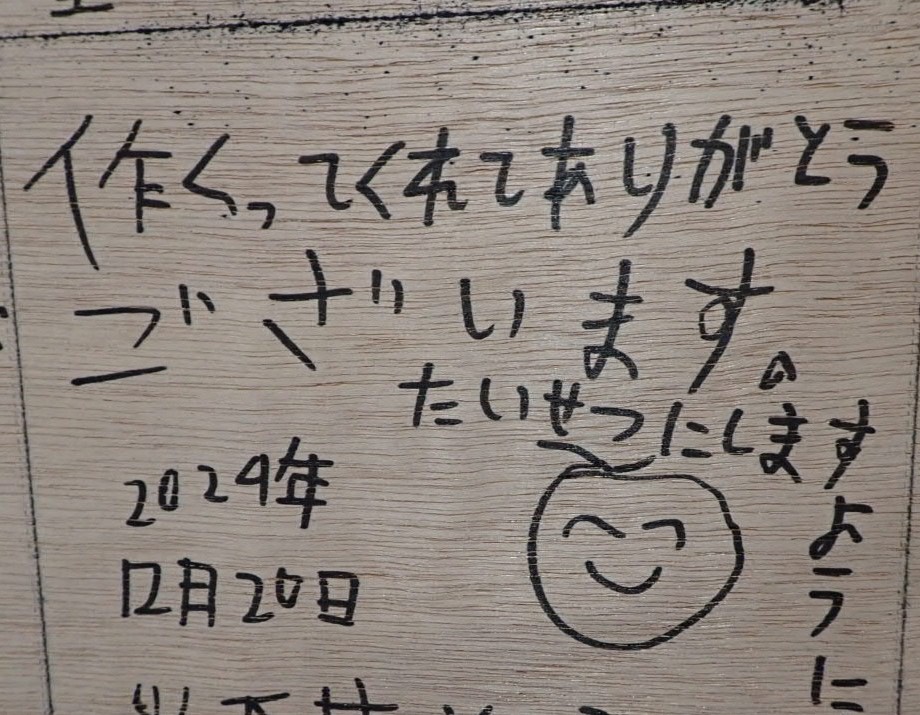 作くってくれてありがとう
ございます。
たいせつにします
ように
2024年
12月20日